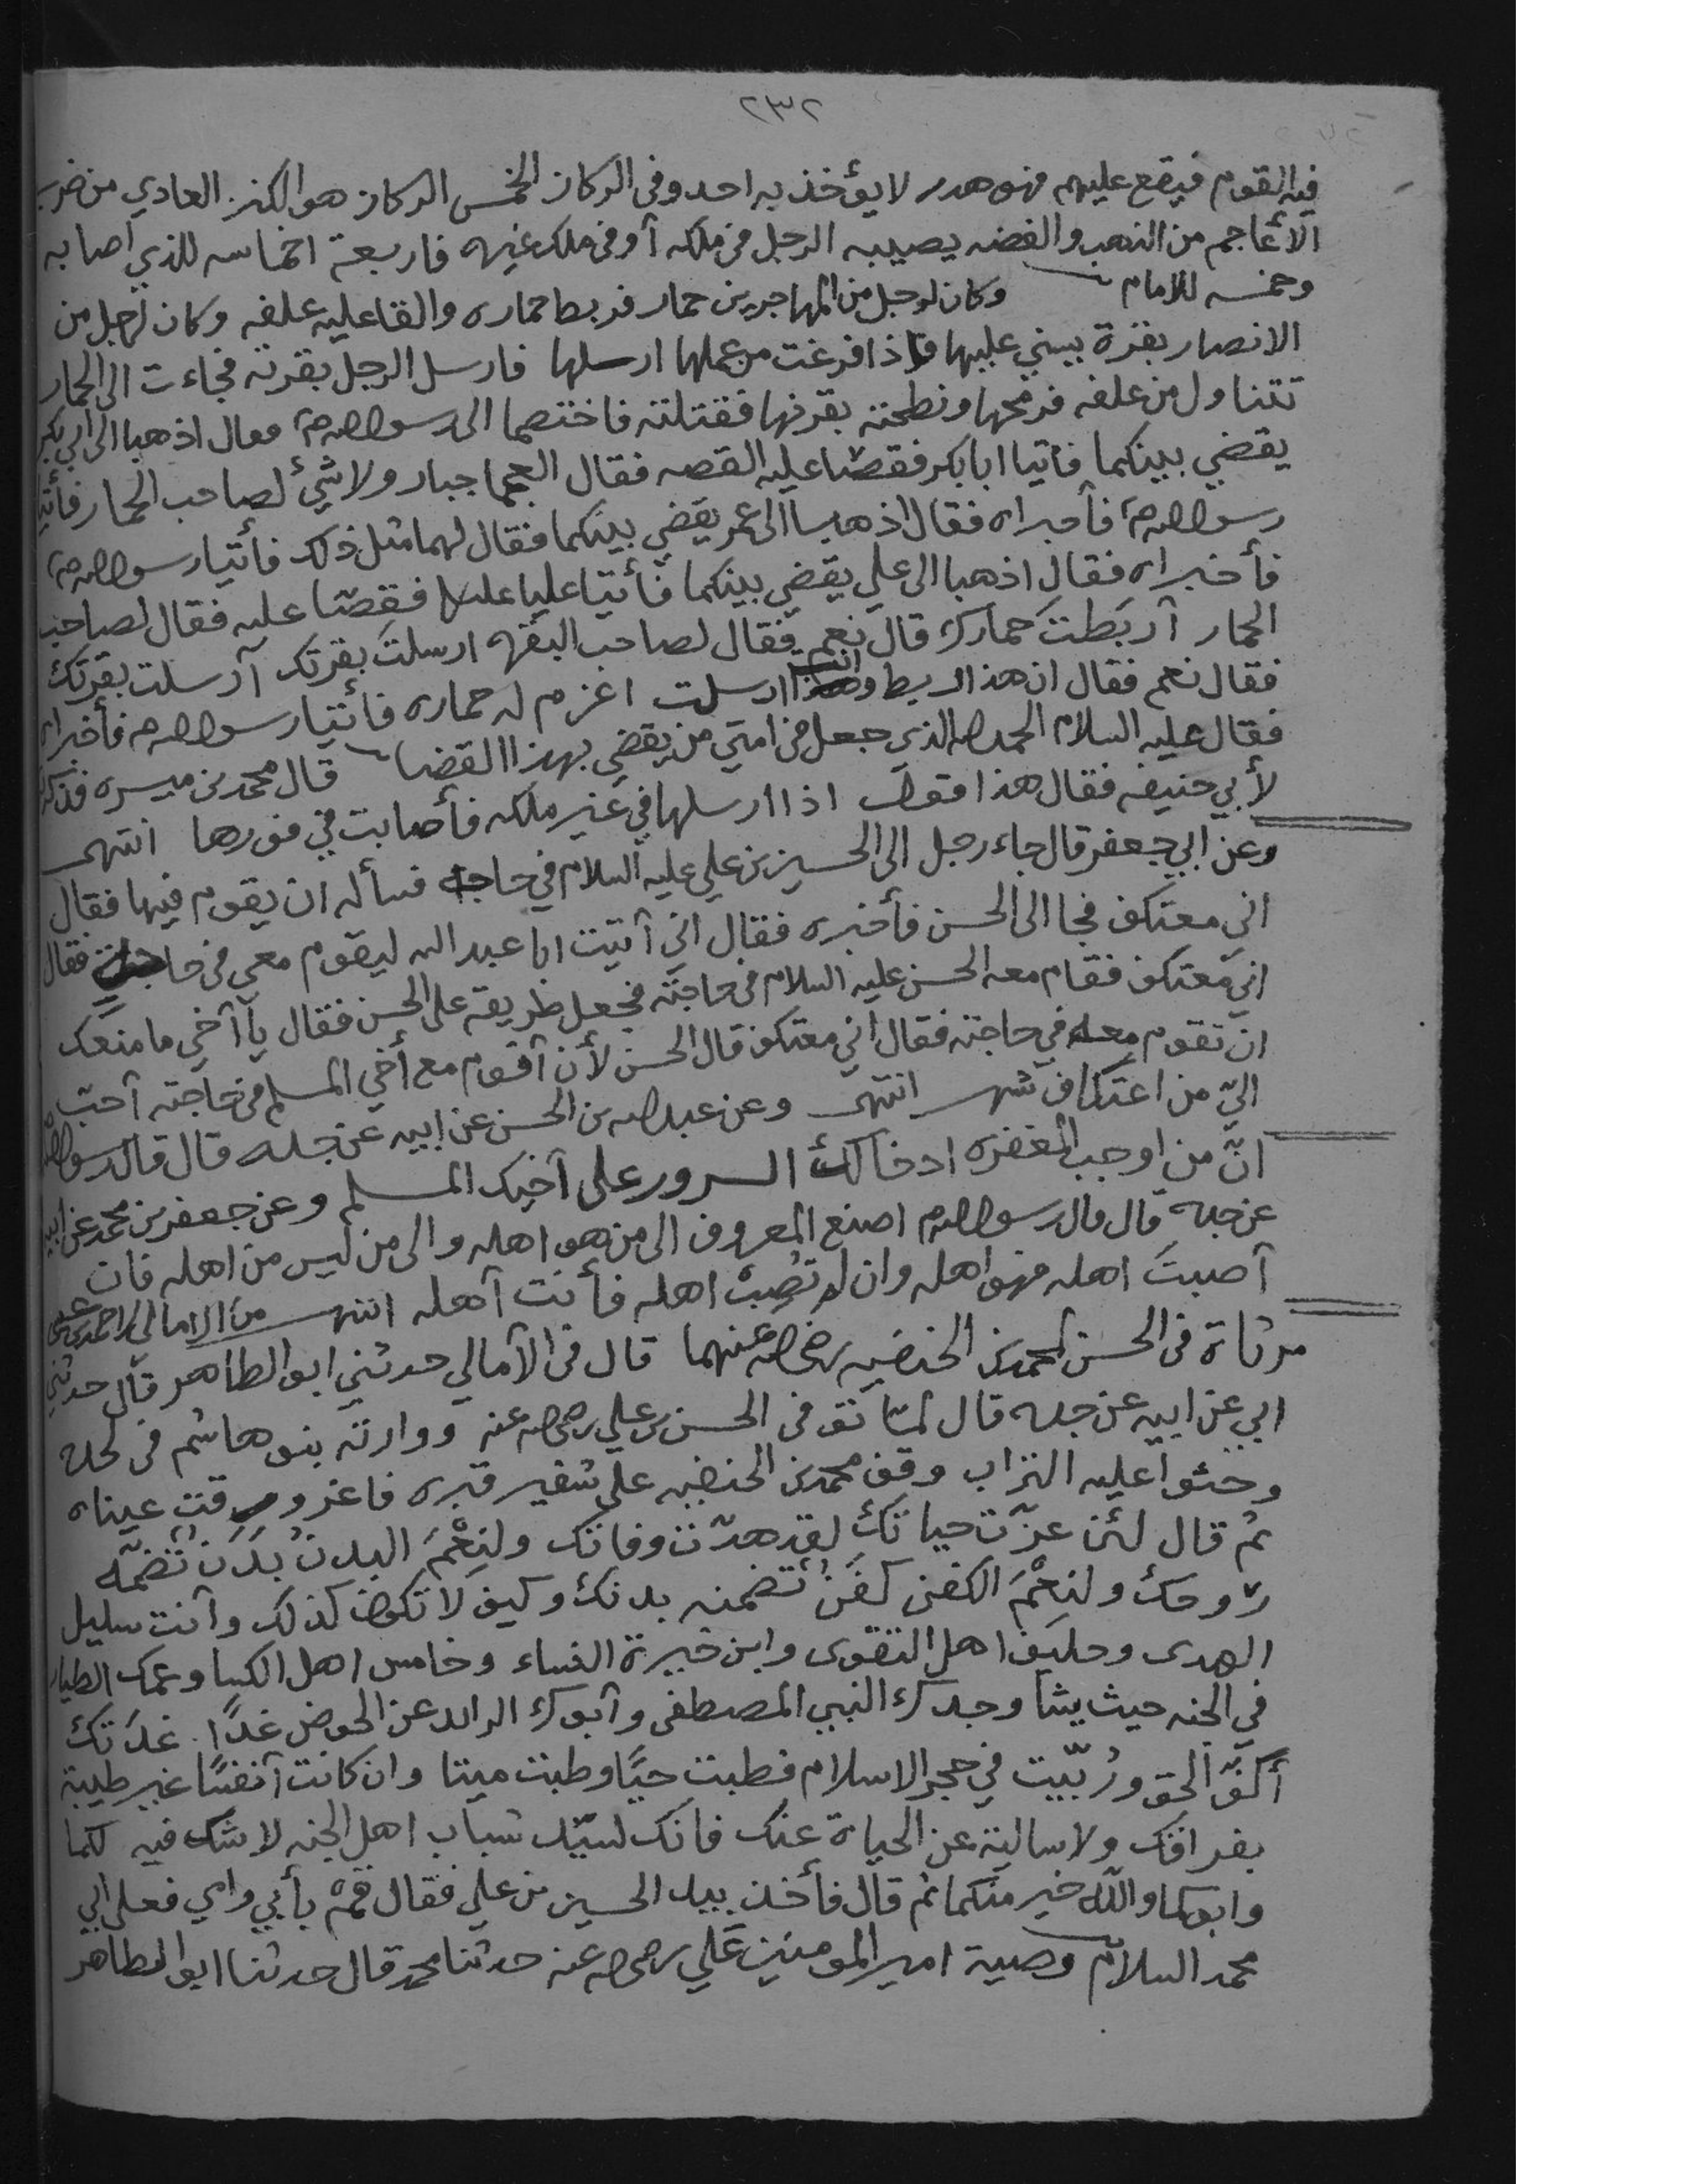 ٢٣٢
فيه القوم فيقع عليهم فهو هدر لا يؤخذ به احد وفي الركاز الخمس الركاز هو الكنز العادي من ضرب
الأعاجم من الذهب والفضه يصيبه الرجل في ملكه أو في ملك غيره فاربعة اخماسه للذي اصابه
وخمسه للامام وكان لرجل من المهاجرين حمار فربط حماره والقا عليه علفه وكان لرجل من
الانصار بقرة يسني عليها فاذا فرغت من عملها ارسلها فارسل الرجل بقرته فجاءت الى الحمار
تتناول من علفه فرمحها ونطحته بقرنها فقتلته فاختصما الى رسول الله ص فقال اذهبا الى ابي بكر
يقضي بينكما فأتيا ابا بكر فقصّا عليه القصه فقال العجما جبار ولا شيئ لصاحب الحمار فأتيا
رسول الله ص فأخبراه فقال اذهبا الى عمر يقضي بينكما فقال لهما مثل ذلك فأتيا رسول الله ص
فأخبراه فقال اذهبا الى علي يقضي بينكما فأتيا عليا فقصّا عليه فقال لصاحب
الحمار أربَطتَ حمارك قال نعم فقال لصاحب البقره ارسلتَ بقرتك أرسلت بقرتك
فقال نعم فقال ان هذا ربط وانت ارسلت اغرم له حماره فأتيا رسول الله ص فأخبراه
فقال عليه السلام الحمد لله الذي جعل في امتي من يقضي بهذا القضا قال محمد بن ميسره فذكرته
لأبي حنيفه فقال هذا اذا ارسلها في غير ملكه فأصابت في فورها انتهى
وعن ابي جعفر قال جاء رجل الى الحسين بن علي عليه السلام في حاجه فسأله ان يقوم فيها فقال
اني معتكف فجا الى الحسن فأخبره فقال اني أتيت ابا عبد الله ليقوم معي في حاجتي فقال
اني معتكف فقام معه الحسن عليه السلام في حاجته فجعل طريقه على الحسن فقال يا أخي ما منعك
ان تقوم معه في حاجته فقال اني معتكف قال الحسن لأن أقوم مع أخي المسلم في حاجته أحبّ
اليّ من اعتكاف شهر انتهى وعن عبد الله بن الحسن عن ابيه عن جده قال قال رسول الله
انّ من اوجب المغفره ادخالك السرور على أخيك المسلم وعن جعفر بن محمد عن ابيه
عن جده قال قال رسول الله ص اصنع المعروف الى من هو اهله والى من ليس من اهله فان
أصبتَ اهله فهو اهله وان لم تُصِبْ اهله فأنت أهله انتهى من الامالي لاحمد بن عيسى
مرثاة في الحسن لمحمد بن الحنفيه رضي الله عنهما قال في الأمالي حدثني ابو الطاهر قال حدثني
ابي عن ابيه عن جده قال لمّا توفي الحسن بن علي رضي الله عنه ووارته بنو هاشم في لحده
وحثوا عليه التراب وقف محمد بن الحنفيه على شفير قبره فاغرورقت عيناه
ثم قال لئن عزّت حياتك لقد هدّت وفاتك ولنِعْمَ البدنُ بَدَنٌ تضمّنه
روحك ولنِعْمَ الكفن كفَنٌ تضمنه بدنك وكيف لا تكون كذلك وأنت سليل
الهدى وحليف اهل التقوى وابن خيرة النساء وخامس اهل الكسا وعمك الطيار
في الجنه حيث يشا وجدك النبي المصطفى وأبوك الرائد عن الحوض غدًا غدَتك
أكفّ الحق ورُبّيت في حجر الاسلام فطبت حيًّا وطبت ميتا وان كانت أنفسًا غير طيبة
بفراقك ولا سالية عن الحياة عنك فانك لسيّد شباب اهل الجنه لا شك فيه لكما
وابوكما والله خير منكما ثم قال فأخذ بيد الحسين بن علي فقال قمْ بأبي وامي فعلى ابي
محمد السلام وصية امير المومنين علي رضي الله عنه حدثنا محمد قال حدثنا ابو الطاهر